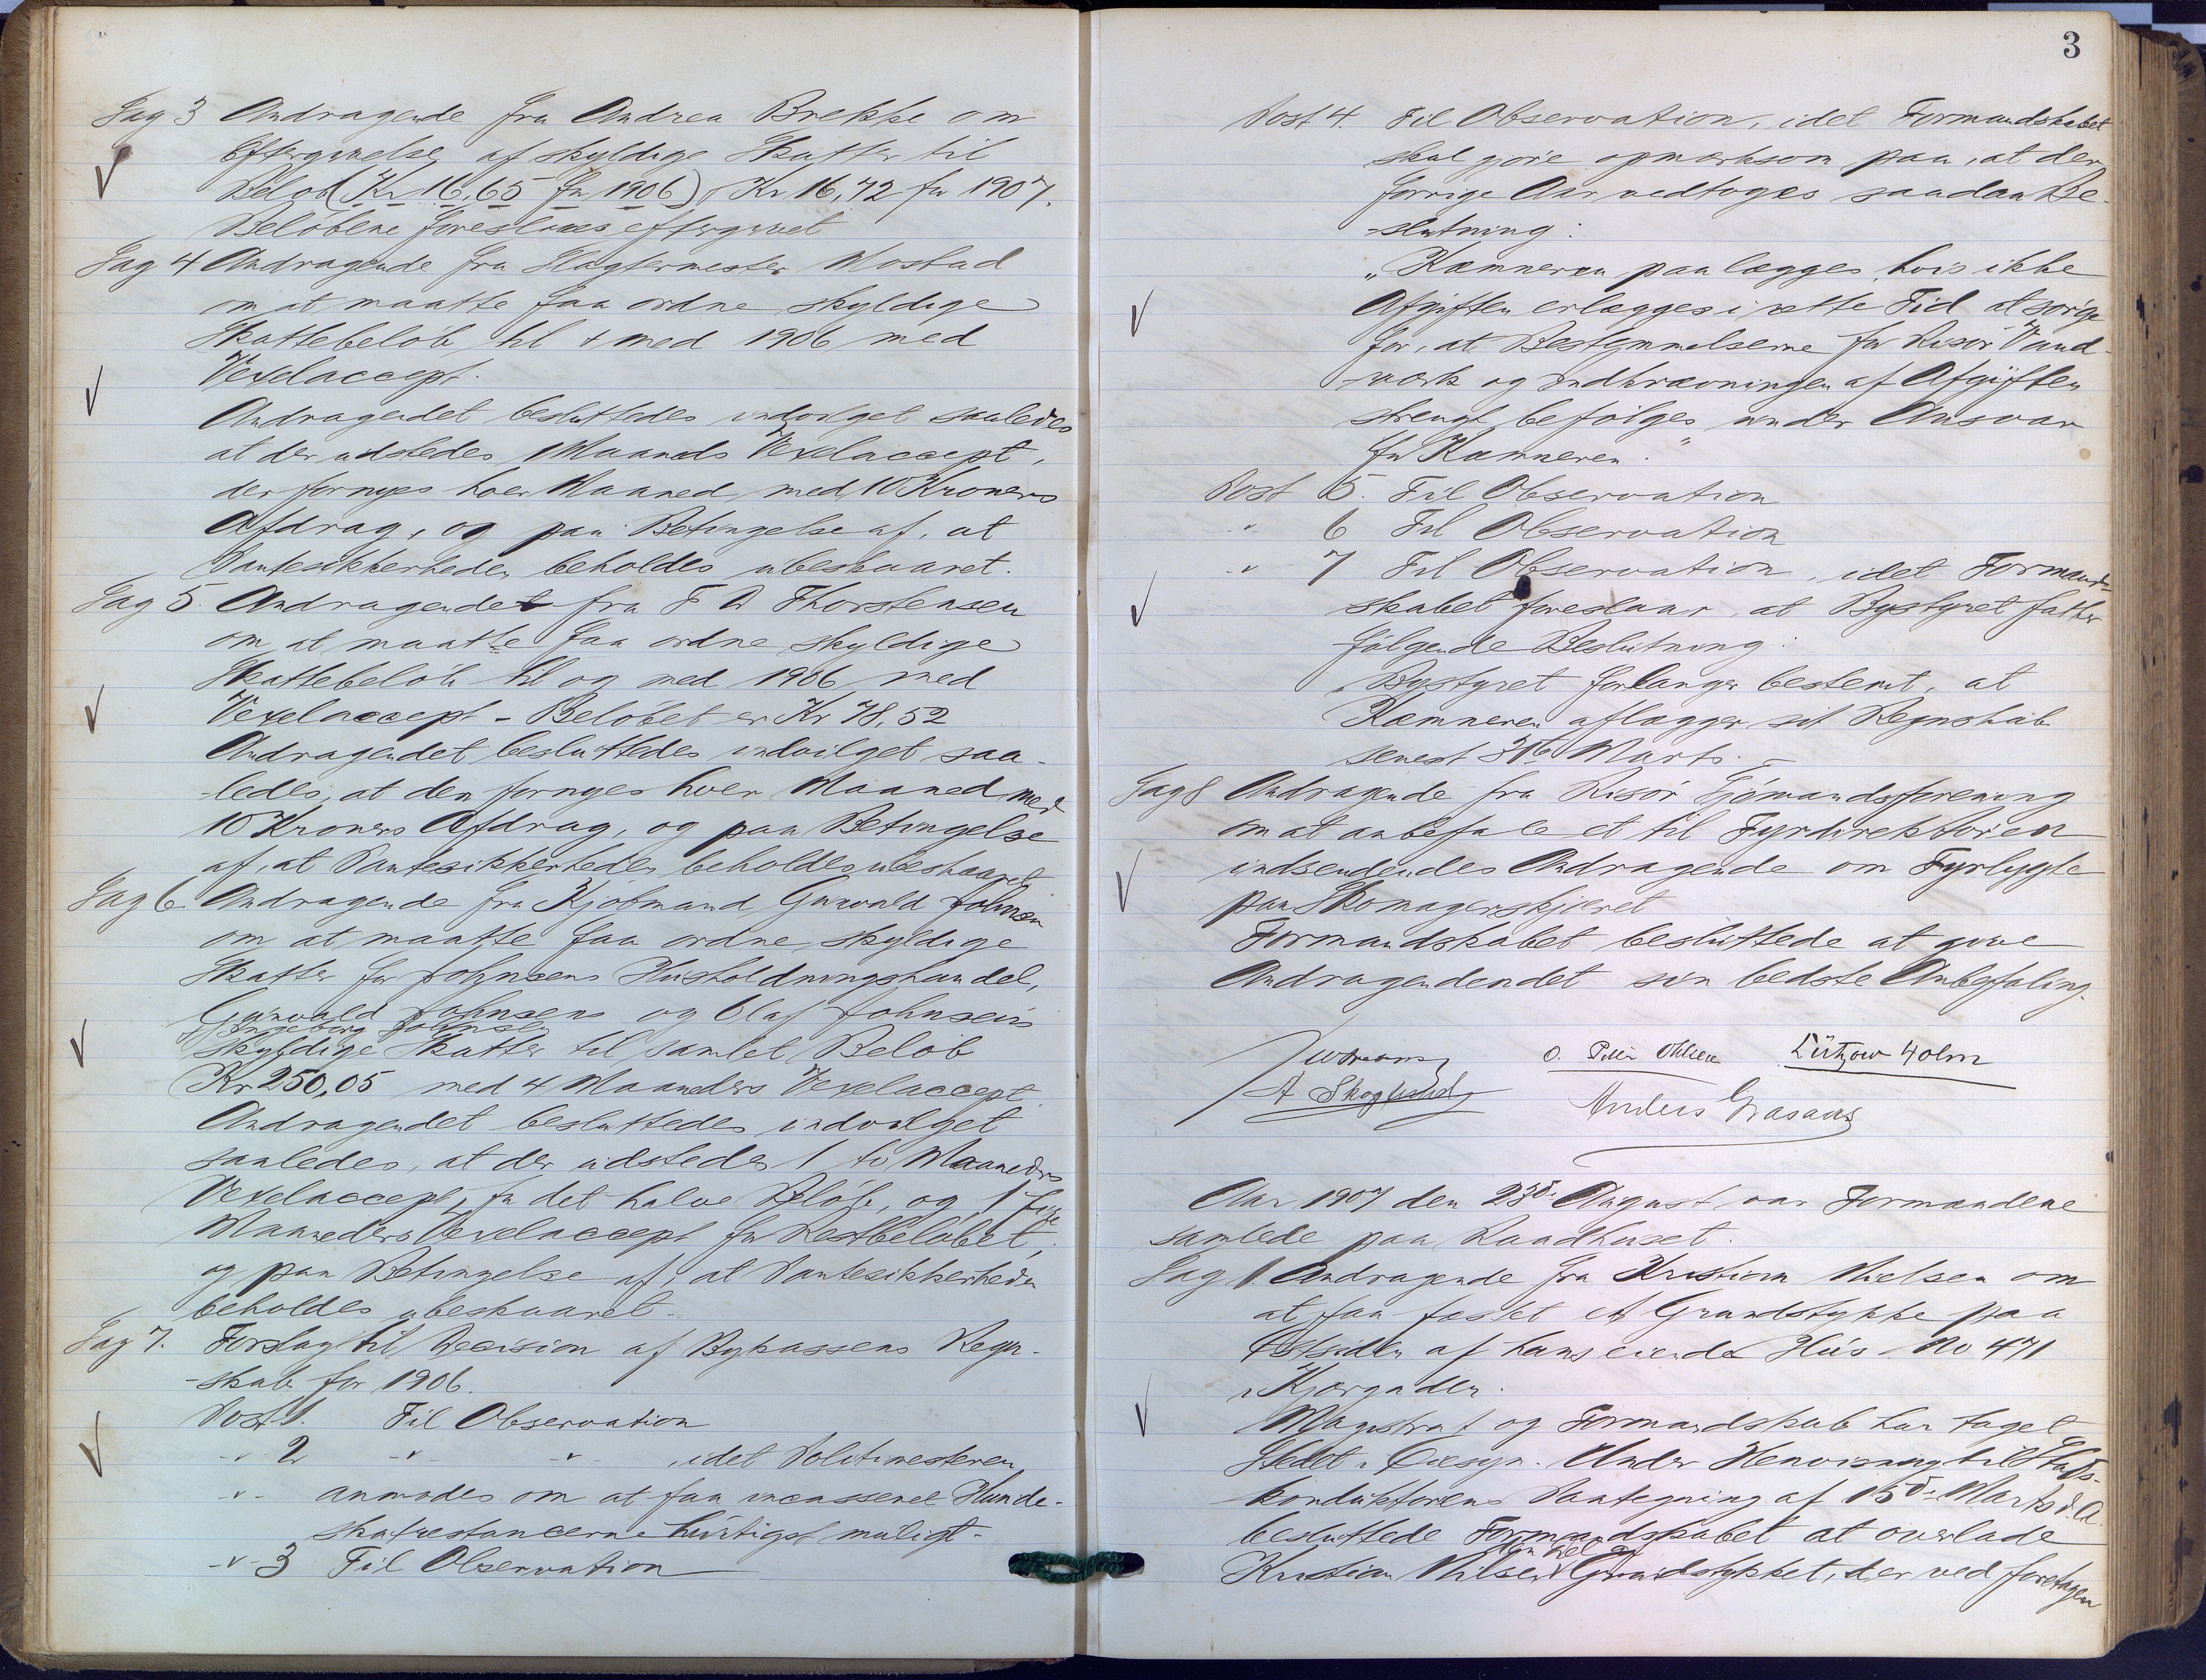 Sag 3 Andragende fra Andrea Brekke om
Eftergivelse af skyldige Skatter til
Beløb (Kr 16,65 for 1906) Kr 16,72 for 1907.
Beløbene foreslaaes eftergivet
Sag 4 Andragende fra Slagtermester Mostad
om at maatte faa ordne skyldige
Skattebeløb til + med 1906 med
Vexelaccept.
Andragendet besluttedes indvilget saaledes
at der udstedes 1 Maaneds Vexelaccept,
der fornyes hver Maaned med 10 Kroners
Afdrag, og paa Betingelse af, at
Pantesikkerheden beholdes ubeskaaret.
Sag 5. Andragendet fra F A Thorstensen
om at maatte faa ordne skyldige
Skattebeløb til og med 1906 med
Vexelaccept - Beløbet er Kr 78,52
Andragendet besluttedes indvilget saa-
-ledes, at den fornyes hver Maaned med
10 Kroners Afdrag, og paa Betingelse
af, at Pantesikkerheden beholdes ubeskaaret
Sag 6 Andragende fra Kjøbmand Gunvald Johnsen
om at maatte faa ordne skyldige
Skatter for Johnsens Husholdningshandel,
Gunvald Johnsens og Olaf Johnsens
Ingeborg Johnsen
skyldige Skatter til samlet Beløb
Kr 250,05 med 4 Maaneders Vexelaccept.
Andragendet besluttedes indvilget
saaledes, at der udstedes 1 to Maaneders
Vexelaccept for det halve Beløb, og 1 fire
Maaneders Vexelaccept for Restbeløbet,
og paa Betingelse af, at Pantesikkerheden
beholdes ubeskaaret.
Sag 7. Forslag til Decision af Bykassens Regn-
-skab for 1906.
Post 1. Til Observation
-"- 2 -"- -"- , idet Politimesteren
-"- anmodes om at faa incasseret Hunde-
skatrestancerne hurtigst muligt.
-"- 3 Til Observation
3
Post 4. Til Observation, idet Formandskabet
skal gøre opmærksom paa, at der
forrige Aar vedtoges saadan Be-
-slutning:
"Kæmneren paalægges, hvis ikke
Afgiften erlægges i rette Tid at sørge
for, at Bestemmelserne for Risør Vand-
-værk og Indkrævningen af Afgiften
strengt befølges under Ansvar
for Kæmneren."
Post 5. Til Observation
-"- 6 Til Observation
-"- 7 Til Observation, idet Formand-
skabet foreslaar, at Bystyret fatter
følgende Beslutning:
"Bystyret forlanger bestemt, at
Kæmneren aflægger sit Regnskab
senest 31te Marts."
Sag 8 Andragende fra Risør Sjømandsforening
om at anbefale et til Fyrdirektøren
indsendendes Andragende om Fyrlygte
paa Skomagerskjæret
Formandskabet besluttede at give
Andragendendet sin bedste Anbefaling.
O. Peter Ohlsen Lützow Holm
A Skoglund
Anders Grasaas
Aar 1907 den 23de August var Formændene
samlede paa Raadhuset.
Sag 1. Andragende fra Kristian Nielsen om
at faa fæstet et Grundstykke paa
Østsiden af hans eiende Hus No 471
i Kjærgaden.
Magistrat og Formandskab har taget
Stedet i Øiesyn. Under Henvisning til Stads-
konduktørens Paategning af 15de Marts d. A.
besluttede Formandskabet at overlade
Kristian Nilsen Grundstykket, der ved foretagen